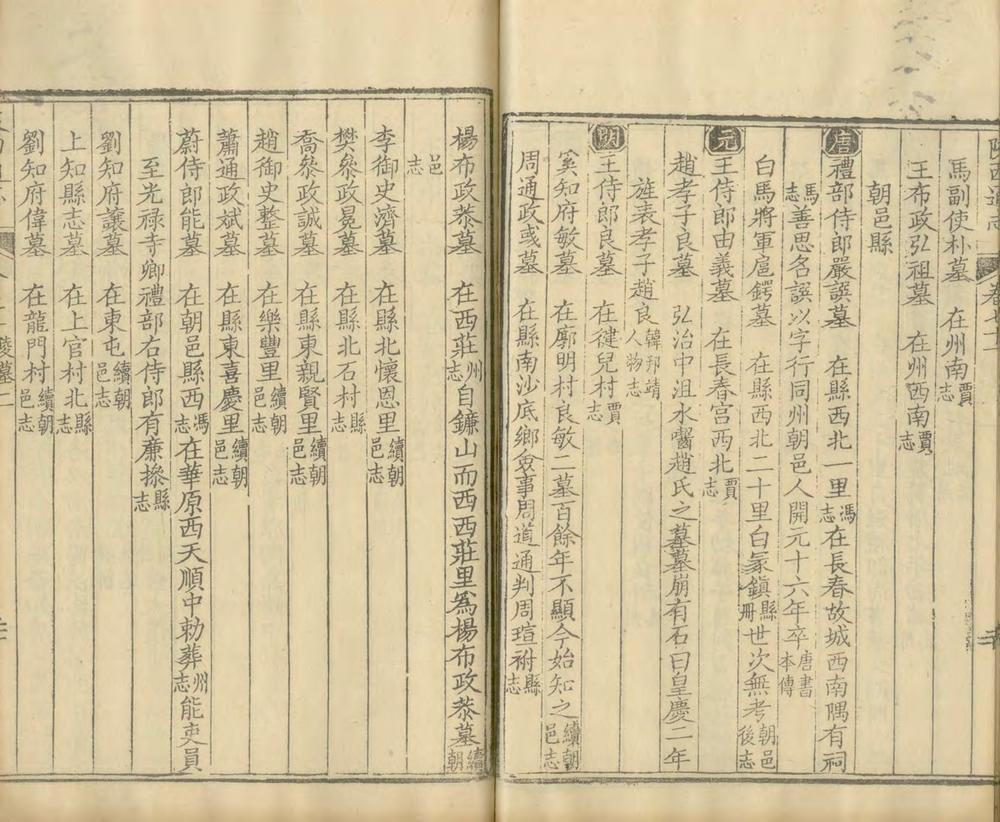 陝西通志 卷七十一
馬副使朴墓 在州南賈志
王布政弘祖墓 在州西南賈志
朝邑縣
唐禮部侍郎嚴譔墓 在縣西北一里馮志在長春故城西南隅有祠
馬志善思名譔以字行同州朝邑人開元十六年卒唐書本傳
白馬將軍扈鍔墓 在縣西北二十里白冡鎮縣冊世次無考朝邑後志
元王侍郎由義墓 在長春宫西北賈志
趙孝子良墓 弘治中沮水齧趙氏之墓墓崩有石曰皇慶二年
旌表孝子趙良韓邦靖人物志
明王侍郎良墓 在徤兒村賈志
奚知府敏墓 在廓明村良敏二墓百餘年不顯今始知之續朝邑志
周通政彧墓 在縣南沙底鄉僉事周道通判周瑄祔縣志
楊布政恭墓 在西莊州志自鐮山而西西莊里爲楊布政恭墓續朝
邑志
李御史濟墓 在縣北懷恩里續朝邑志
樊叅政冕墓 在縣北石村縣志
喬叅政誠墓 在縣東親賢里續朝邑志
趙御史整墓 在樂豐里續朝邑志
蕭通政斌墓 在縣東喜慶里續朝邑志
蔚侍郎能墓 在朝邑縣西馮志在華原西天順中勅葬州志能吏員
至光禄寺卿禮部右侍郎有廉操縣志
劉知府讓墓 在東屯續朝邑志
上知縣志墓 在上官村北縣志
劉知府偉墓 在龍門村續朝邑志
陵墓二